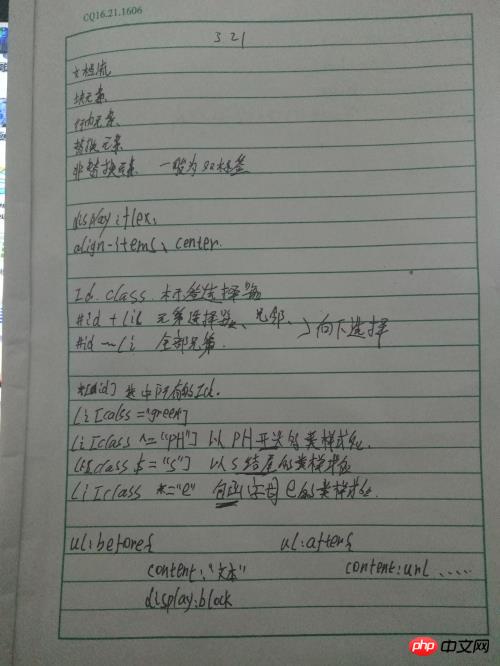 CQ16.21.1606
3 21
文档流
块元素
行内元素
替换元素
非替换元素 一般为双标签
display:flex;
align-items:center.
Id. class. 标签选择器
#id + li{ 元素选择器、兄邻、
#id ~ li 全部兄弟. 向下选择
*[id] 选中所有的Id.
li[calss="green]
li[class ^= "PH"] 以PH开头的类样式名.
li[class $= "s"] 以s结尾的类样式名
li[class *= "e" 包函字母e的类样式名.
ul:before{ ul:after{
content:"文本" content:url .....
display:block
php 中文网